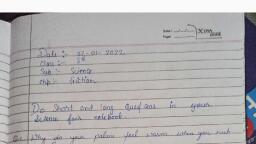 Date :- 12-01-2022
Class :- 8th
Sub :- Science
Chp :- Friction
Do short and long questions in your
Science fair notebook.
Q1. Why do your palms feel warm when you rub